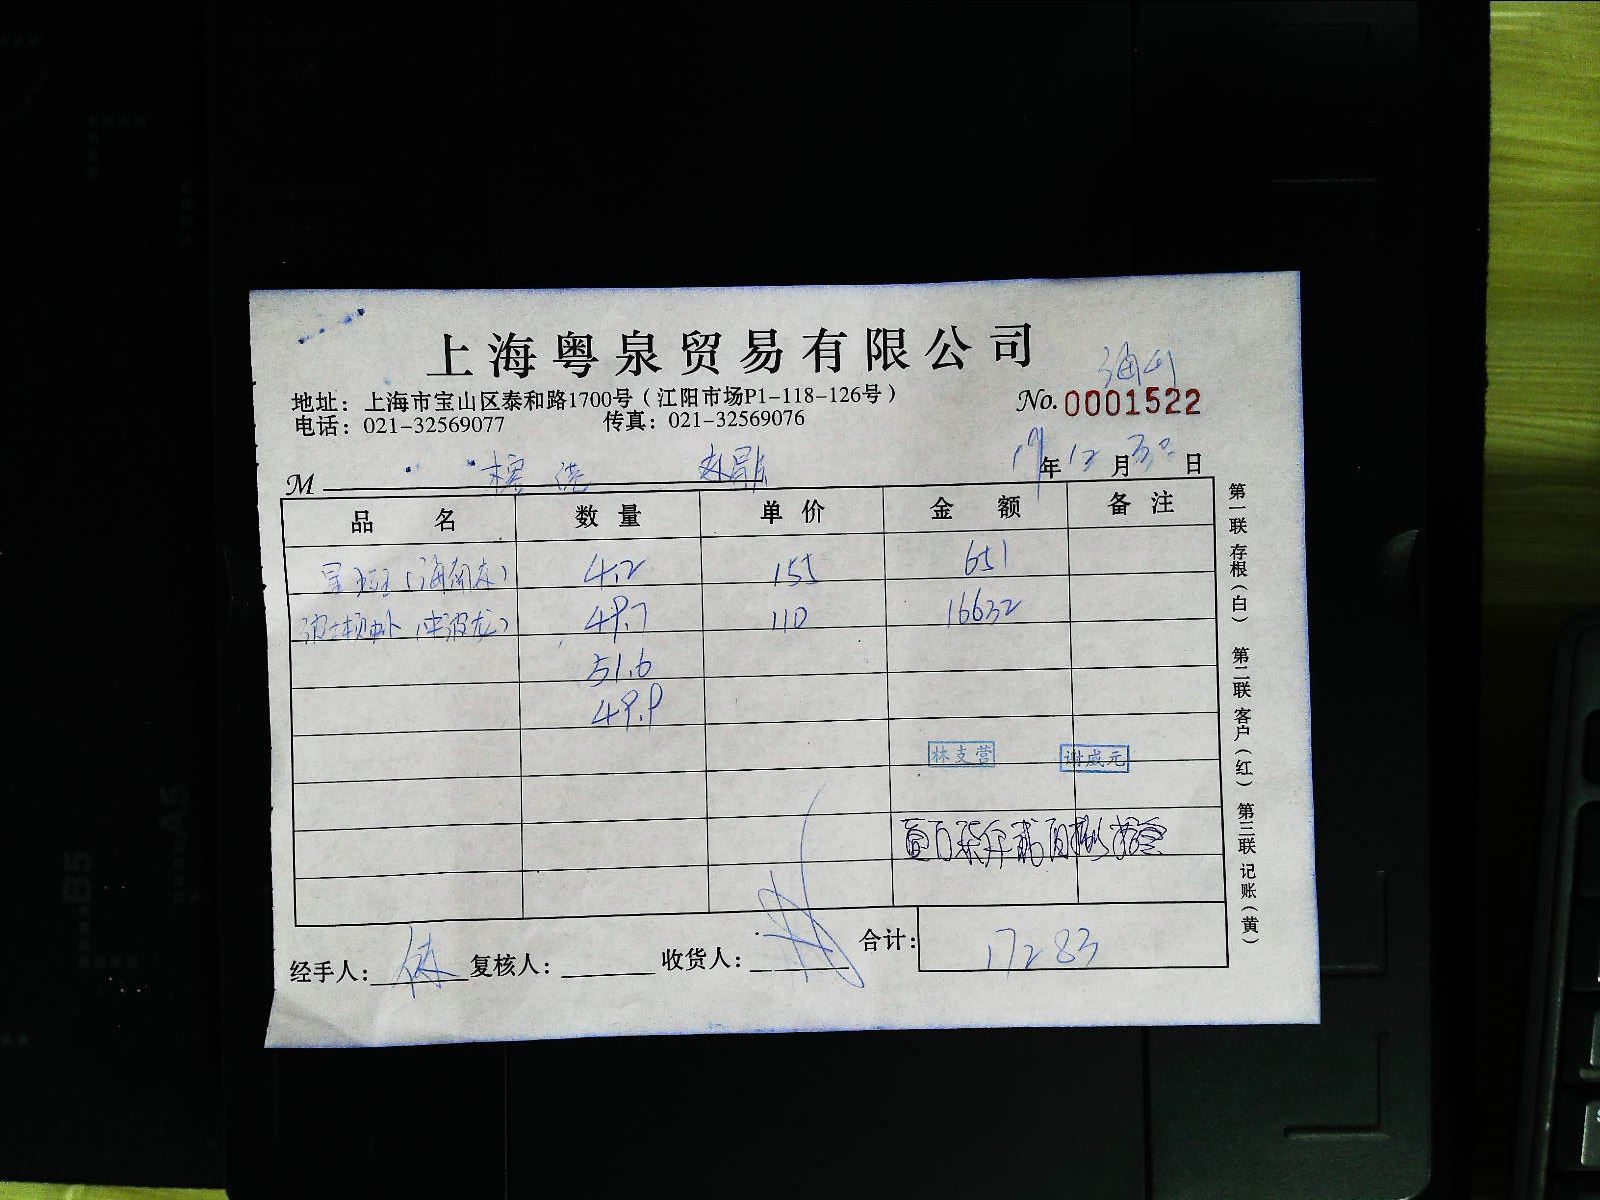 上海粤泉贸易有限公司
地址：上海市宝山区泰和路1700号（江阳市场P1-118-126号）
No. 0001522
电话：021-32569077 传真：021-32569076
M
年 12 月 30 日
品 名 数 量 单 价 金 额 备 注
4.2 155 651
49.7 110 16632
51.6
49.9
林支营 谢威元
合计： 17283
经手人： 复核人： 收货人：
第一联 存根（白） 第二联 客户（红） 第三联 记账（黄）
B5
A5